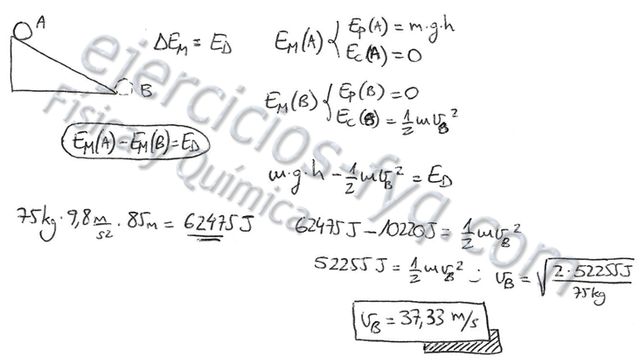 A
B
ΔE_M = E_D
E_M(A) { E_P(A) = m·g·h
E_C(A) = 0
E_M(B) { E_P(B) = 0
E_C(B) = 1/2 m v_B²
E_M(A) - E_M(B) = E_D
m·g·h - 1/2 m v_B² = E_D
75 kg · 9,8 m/s² · 85 m = 62475 J
62475 J - 10220 J = 1/2 m v_B²
52255 J = 1/2 m v_B² ; v_B = √(2·52255 J / 75 kg)
v_B = 37,33 m/s
ejercicios-fyq.com
Física y Química